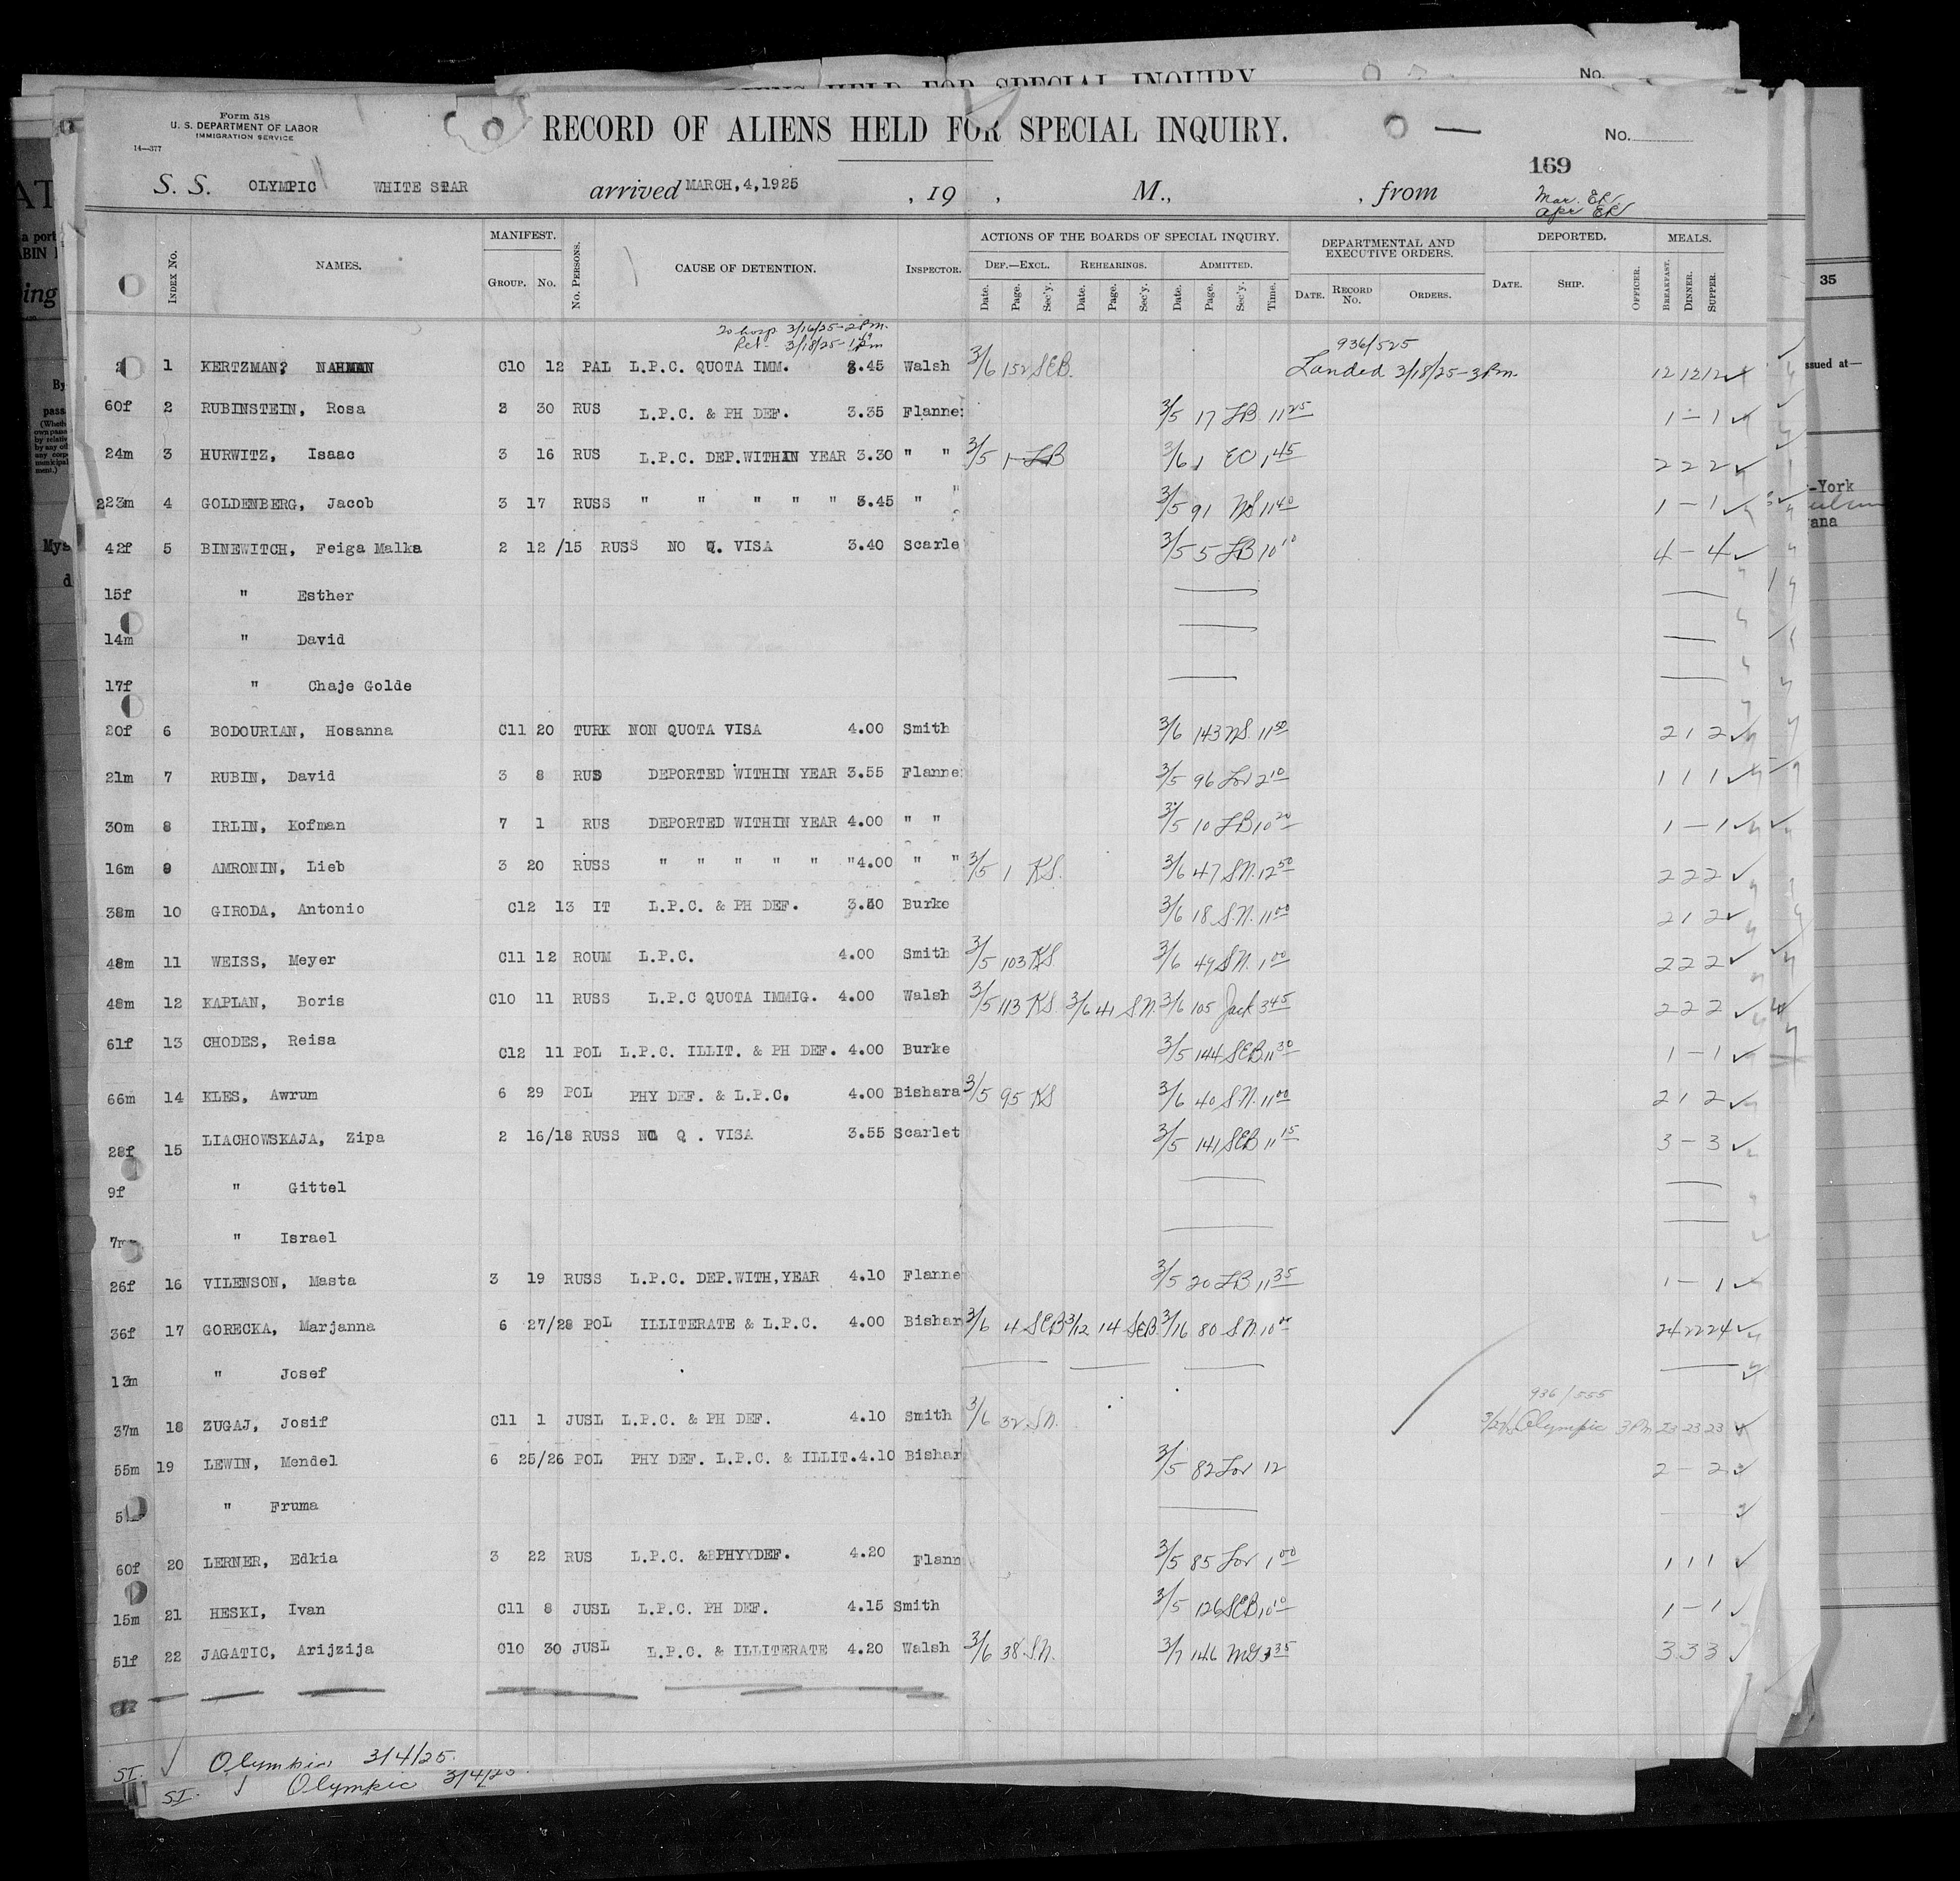 ALIENS HELD FOR SPECIAL INQUIRY No.
Form 518
U. S. DEPARTMENT OF LABOR
IMMIGRATION SERVICE
14—377
RECORD OF ALIENS HELD FOR SPECIAL INQUIRY. No.
169
S. S. OLYMPIC WHITE STAR arrived MARCH,4,1925 , 19 , M., , from
Mar. ER
Apr ER
INDEX No. NAMES. MANIFEST. GROUP. No. No. PERSONS. CAUSE OF DETENTION. INSPECTOR. ACTIONS OF THE BOARDS OF SPECIAL INQUIRY. DEF.—EXCL. Date. Page. Sec'y. REHEARINGS. Date. Page. Sec'y. ADMITTED. Date. Page. Sec'y. Time. DEPARTMENTAL AND EXECUTIVE ORDERS. DATE. RECORD No. ORDERS. DEPORTED. DATE. SHIP. OFFICER. MEALS. BREAKFAST. DINNER. SUPPER.
To hosp 3/16/25-2Pm. 936/525
Ret. 3/18/25-1 Pm
1 KERTZMAN? NAHMAN C10 12 PAL L.P.C. QUOTA IMM. 3.45 Walsh 3/6 152 SEB. Landed 3/18/25-3Pm. 12 12 12
60f 2 RUBINSTEIN, Rosa 3 30 RUS L.P.C. & PH DEF. 3.35 Flanne 3/5 17 LB 11 25 1 - 1
24m 3 HURWITZ, Isaac 3 16 RUS L.P.C. DEP.WITHIN YEAR 3.30 " " 3/5 1 LB 3/6 1 EO 1 45 2 2 2
23m 4 GOLDENBERG, Jacob 3 17 RUSS " " " " " 3.45 " " 3/5 91 NS 11 40 1 - 1
42f 5 BINEWITCH, Feiga Malka 2 12 /15 RUSS NO Q. VISA 3.40 Scarle 3/5 5 LB 10 10 4 - 4
15f " Esther
14m " David
17f " Chaje Golde
20f 6 BODOURIAN, Hosanna C11 20 TURK NON QUOTA VISA 4.00 Smith 3/6 143 NS. 11 50 2 1 2
21m 7 RUBIN, David 3 8 RUS DEPORTED WITHIN YEAR 3.55 Flanne 3/5 96 Lor 2 10 1 1 1
30m 8 IRLIN, Kofman 7 1 RUS DEPORTED WITHIN YEAR 4.00 " " 3/5 10 LB 10 20 1 - 1
16m 9 AMRONIN, Lieb 3 20 RUSS " " " " " "4.00 " " 3/5 1 KS. 3/6 47 S.N. 12 50 2 2 2
38m 10 GIRODA, Antonio C12 13 IT L.P.C. & PH DEF. 3.50 Burke 3/6 18 S.N. 11 00 2 1 2
48m 11 WEISS, Meyer C11 12 ROUM L.P.C. 4.00 Smith 3/5 103 KS. 3/6 49 S.N. 1 00 2 2 2
48m 12 KAPLAN, Boris C10 11 RUSS L.P.C QUOTA IMMIG. 4.00 Walsh 3/5 113 KS. 3/6 41 S.N. 3/6 105 Jack 3 45 2 2 2
61f 13 CHODES, Reisa C12 11 POL L.P.C. ILLIT. & PH DEF. 4.00 Burke 3/5 144 SEB 11 30 1 - 1
66m 14 ELES, Awrum 6 29 POL PHY DEF. & L.P.C. 4.00 Bishara 3/5 95 KS 3/6 40 S.N. 11 00 2 1 2
28f 15 LIACHOWSKAJA, Zipa 2 16/18 RUSS NO Q . VISA 3.55 Scarlet 3/5 141 SEB 11 15 3 - 3
9f " Gittel
" Israel
26f 16 VILENSON, Masta 3 19 RUSS L.P.C. DEP.WITH,YEAR 4.10 Flanne 3/5 20 LB 11 35 1 - 1
36f 17 GORECKA, Marjanna 6 27/28 POL ILLITERATE & L.P.C. 4.00 Bishar 3/6 4 SEB 3/12 14 SEB 3/16 80 S.N. 10 00 24 22 24
13m " Josef
936/555
37m 18 ZUGAJ, Josif C11 1 JUSL L.P.C. & PH DEF. 4.10 Smith 3/6 32 S.N. Olympic 3Pm 23 23 23
55m 19 LEWIN, Mendel 6 25/26 POL PHY DEF. L.P.C. & ILLIT.4.10 Bishar 3/5 82 Lor 12 2 - 2
" Fruma
60f 20 LERNER, Edkia 3 22 RUS L.P.C. &PHYDEF. 4.20 Flann 3/5 85 Lor 1 00 1 1 1
15m 21 HESKI, Ivan C11 8 JUSL L.P.C. PH DEF. 4.15 Smith 3/5 126 SEB 10 10 1 - 1
51f 22 JAGATIC, Arijzija C10 30 JUSL L.P.C. & ILLITERATE 4.20 Walsh 3/6 38 S.N. 3/7 146 3 35 3 3 3
SI. Olympic 3/4/25.
SI. Olympic 3/4/25
35
ssued at—
-York
ana